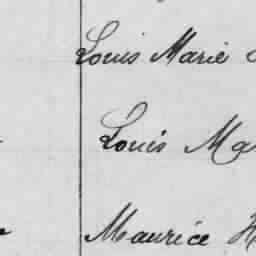 Louis Marie
Louis Ma
Maurice H